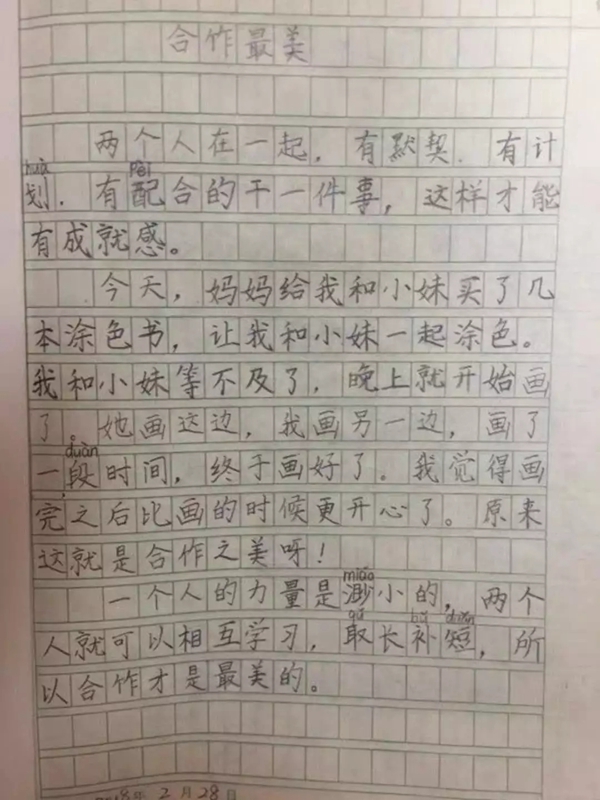 合作最美
两个人在一起，有默契．有计
huà pèi
划．有配合的干一件事，这样才能
有成就感。
今天，妈妈给我和小妹买了几
本涂色书，让我和小妹一起涂色。
我和小妹等不及了，晚上就开始画
了。她画这边，我画另一边，画了
duàn
一段时间，终于画好了。我觉得画
完之后比画的时候更开心了。原来
这就是合作之美呀！
miǎo
一个人的力量是渺小的，两个
qǔ bǔ duǎn
人就可以相互学习，取长补短，所
以合作才是最美的。
2018年2月28日